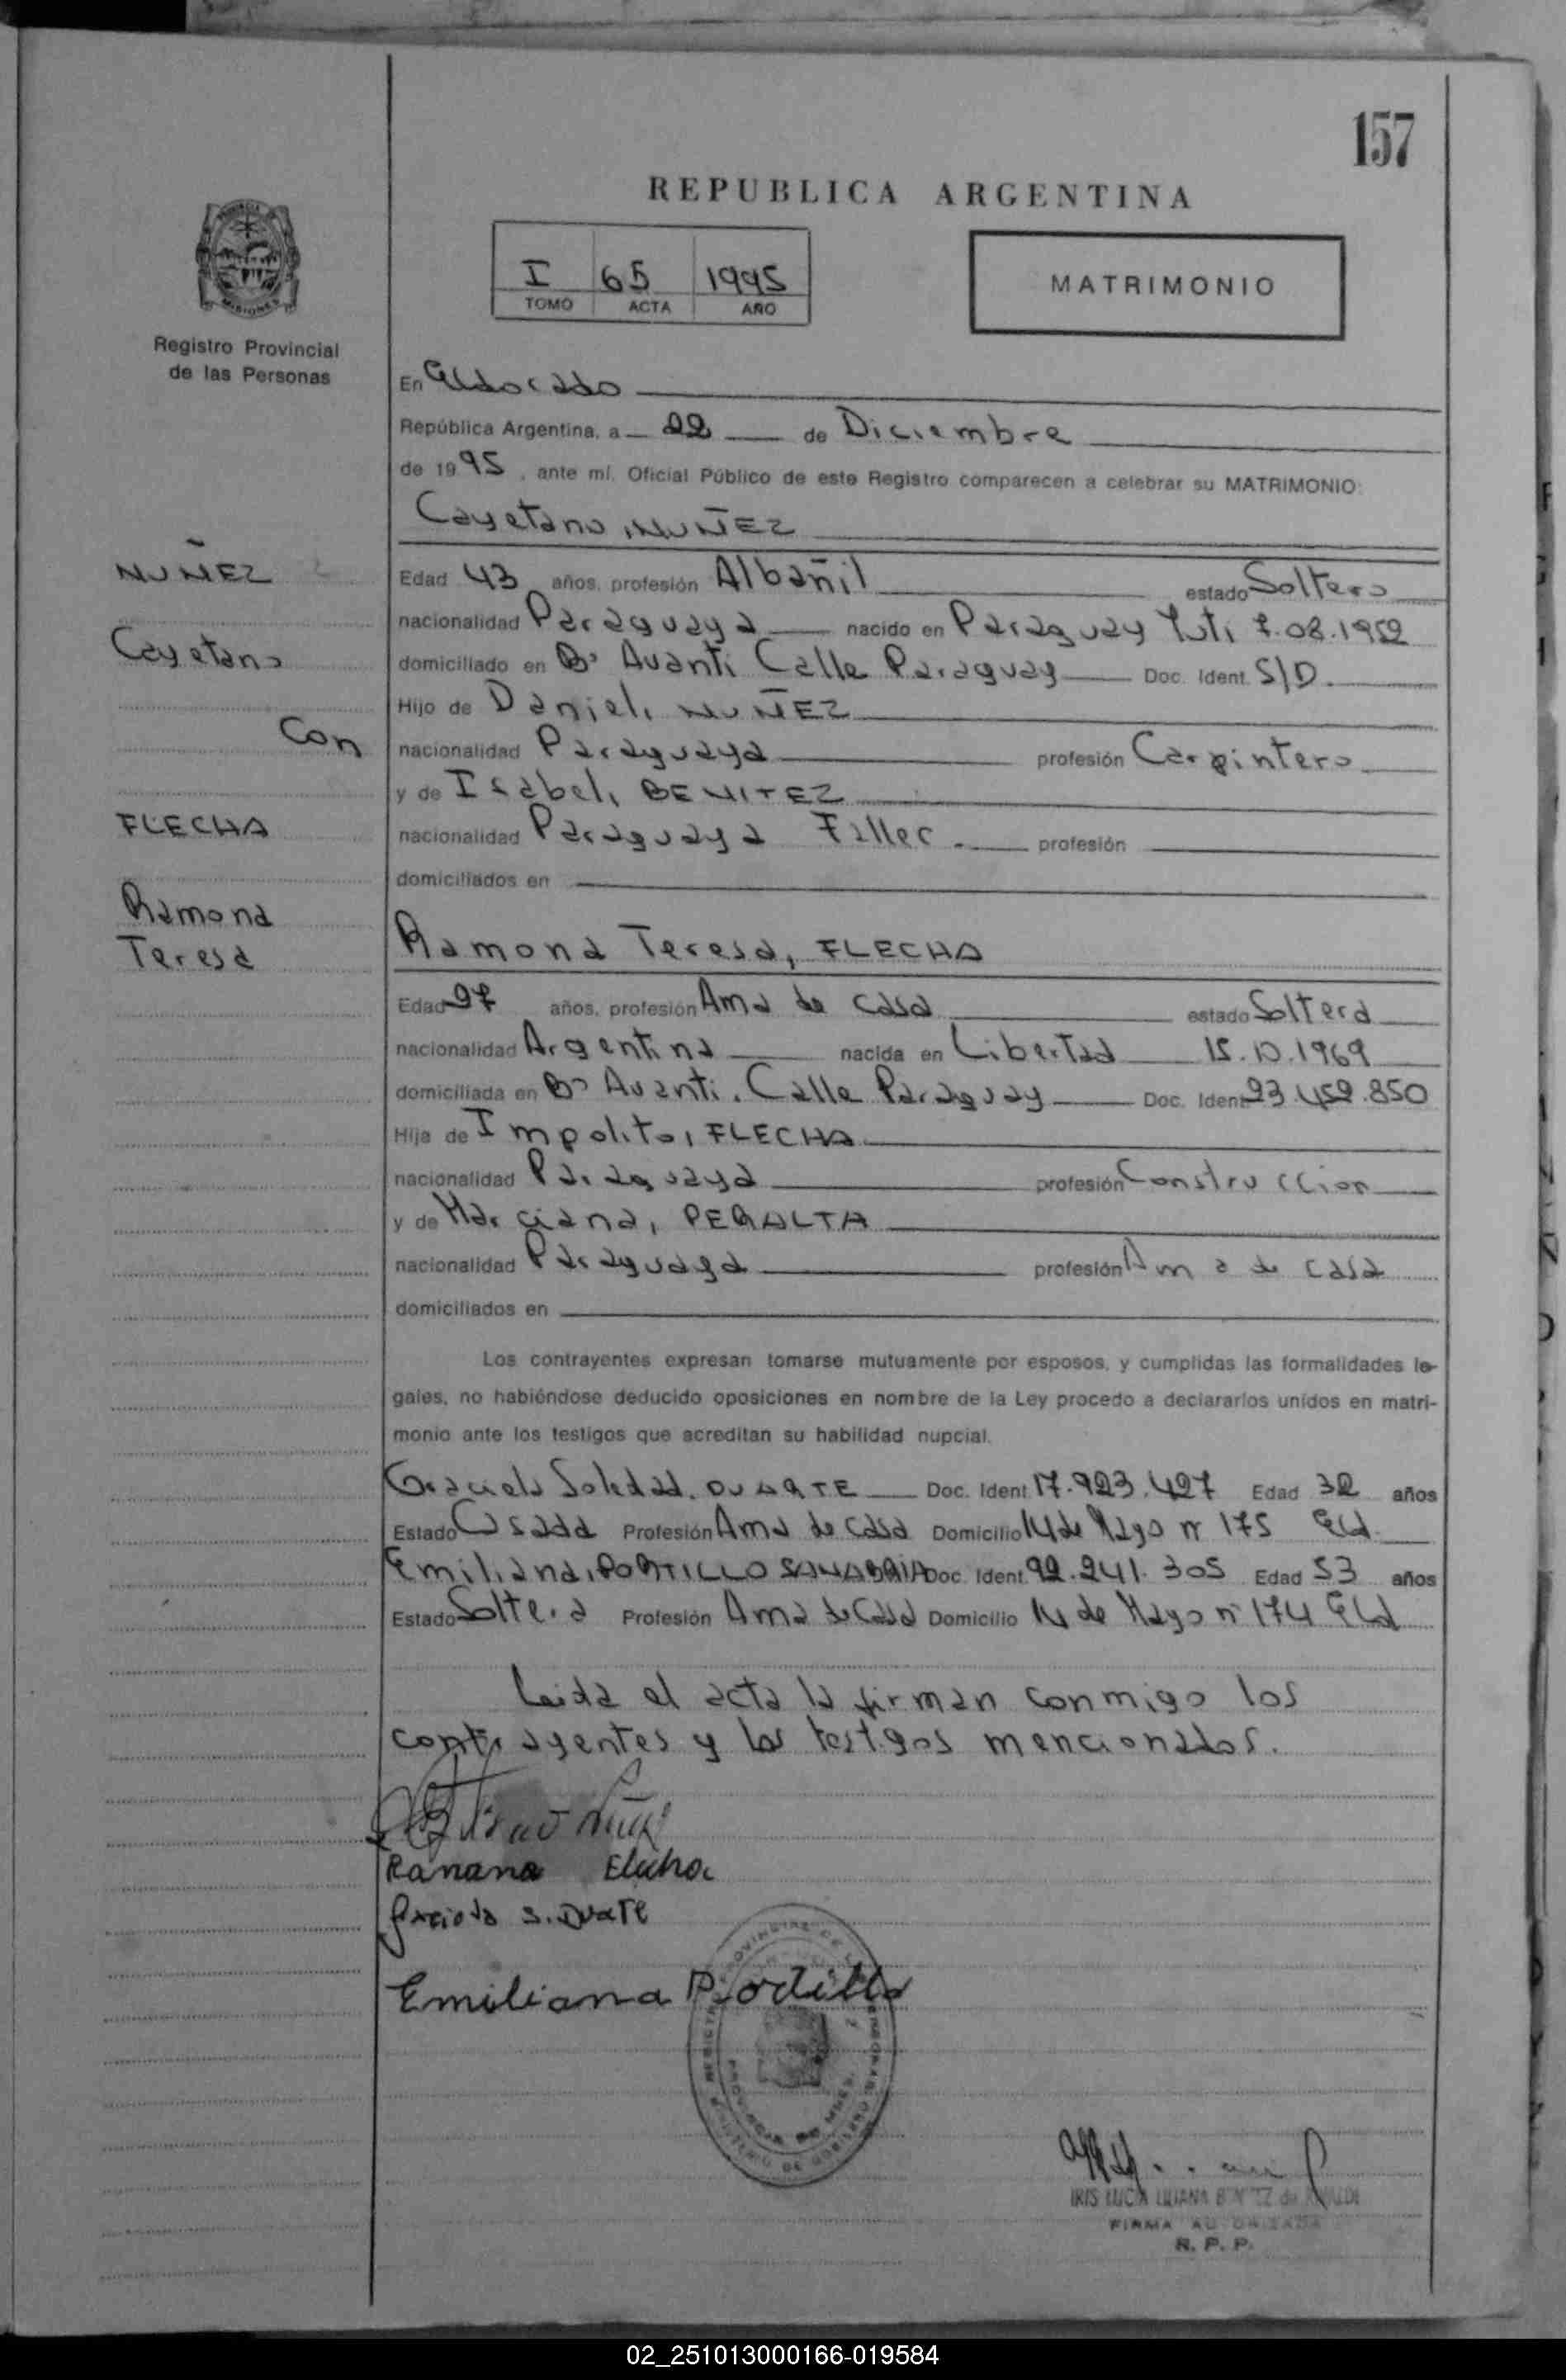 157
REPUBLICA ARGENTINA
I 65 1995
TOMO ACTA AÑO
MATRIMONIO
PROVINCIA
MISIONES
Registro Provincial
de las Personas
En Eldorado
República Argentina, a 22 de Diciembre
de 1995, ante mí, Oficial Público de este Registro comparecen a celebrar su MATRIMONIO:
Cayetano, NUÑEZ
NUÑEZ
Cayetano
Con
FLECHA
Ramona
Teresa
Edad 43 años, profesión Albañil estado Soltero
nacionalidad Paraguaya nacido en Paraguay Yuti 7.08.1952
domiciliado en Bº Avanti Calle Paraguay Doc. Ident. S/D.
Hijo de Daniel, NUÑEZ
nacionalidad Paraguaya profesión Carpintero
y de Isabel, BENITEZ
nacionalidad Paraguaya Fallec. profesión
domiciliados en
Ramona Teresa, FLECHA
Edad 27 años, profesión Ama de casa estado Soltera
nacionalidad Argentina nacida en Libertad 15.10.1969
domiciliada en Bº Avanti. Calle Paraguay Doc. Ident. 23.452.850
Hija de Impolito, FLECHA
nacionalidad Paraguaya profesión Construccion
y de Marciana, PERALTA
nacionalidad Paraguaya profesión Ama de casa
domiciliados en
Los contrayentes expresan tomarse mutuamente por esposos, y cumplidas las formalidades le-
gales, no habiéndose deducido oposiciones en nombre de la Ley procedo a declararlos unidos en matri-
monio ante los testigos que acreditan su habilidad nupcial.
Graciela Soledad, DUARTE Doc. Ident. 17.923.427 Edad 32 años
Estado Casada Profesión Ama de casa Domicilio 14 de Mayo nº 175 Eld.
Emiliana, PORTILLO SANABRIA Doc. Ident. 92.241.305 Edad 53 años
Estado Soltera Profesión Ama de Casa Domicilio 14 de Mayo nº 174 Eld
Leida el acta la firman conmigo los
contrayentes y los testigos mencionados.
Ramona Flecha
Graciela S. Duarte
Emiliana Portillo
IRIS LUCIA LILIANA BENITEZ de
FIRMA AUTORIZADA
R. P. P.
02_251013000166-019584